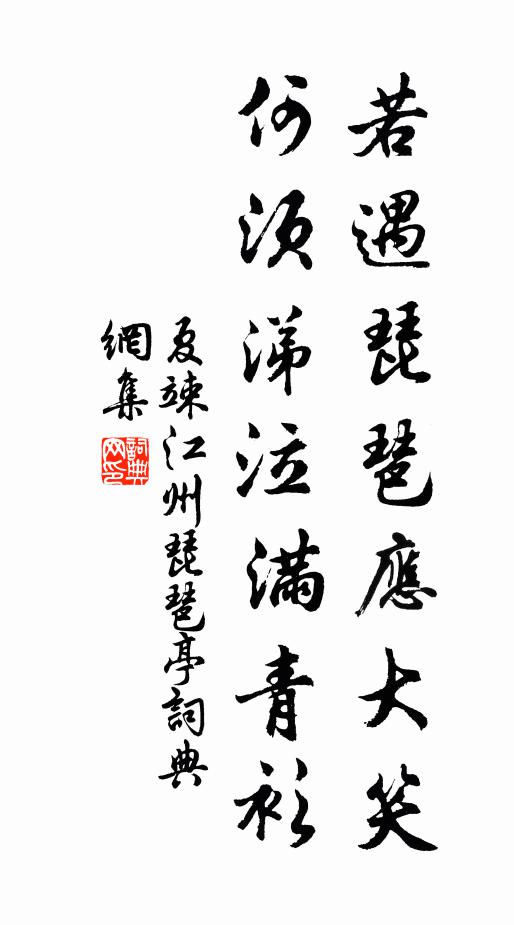 若遇琵琶應大笑
何須涕泣滿青衫
夏竦江州琵琶亭詞典
網集
詞典
网印